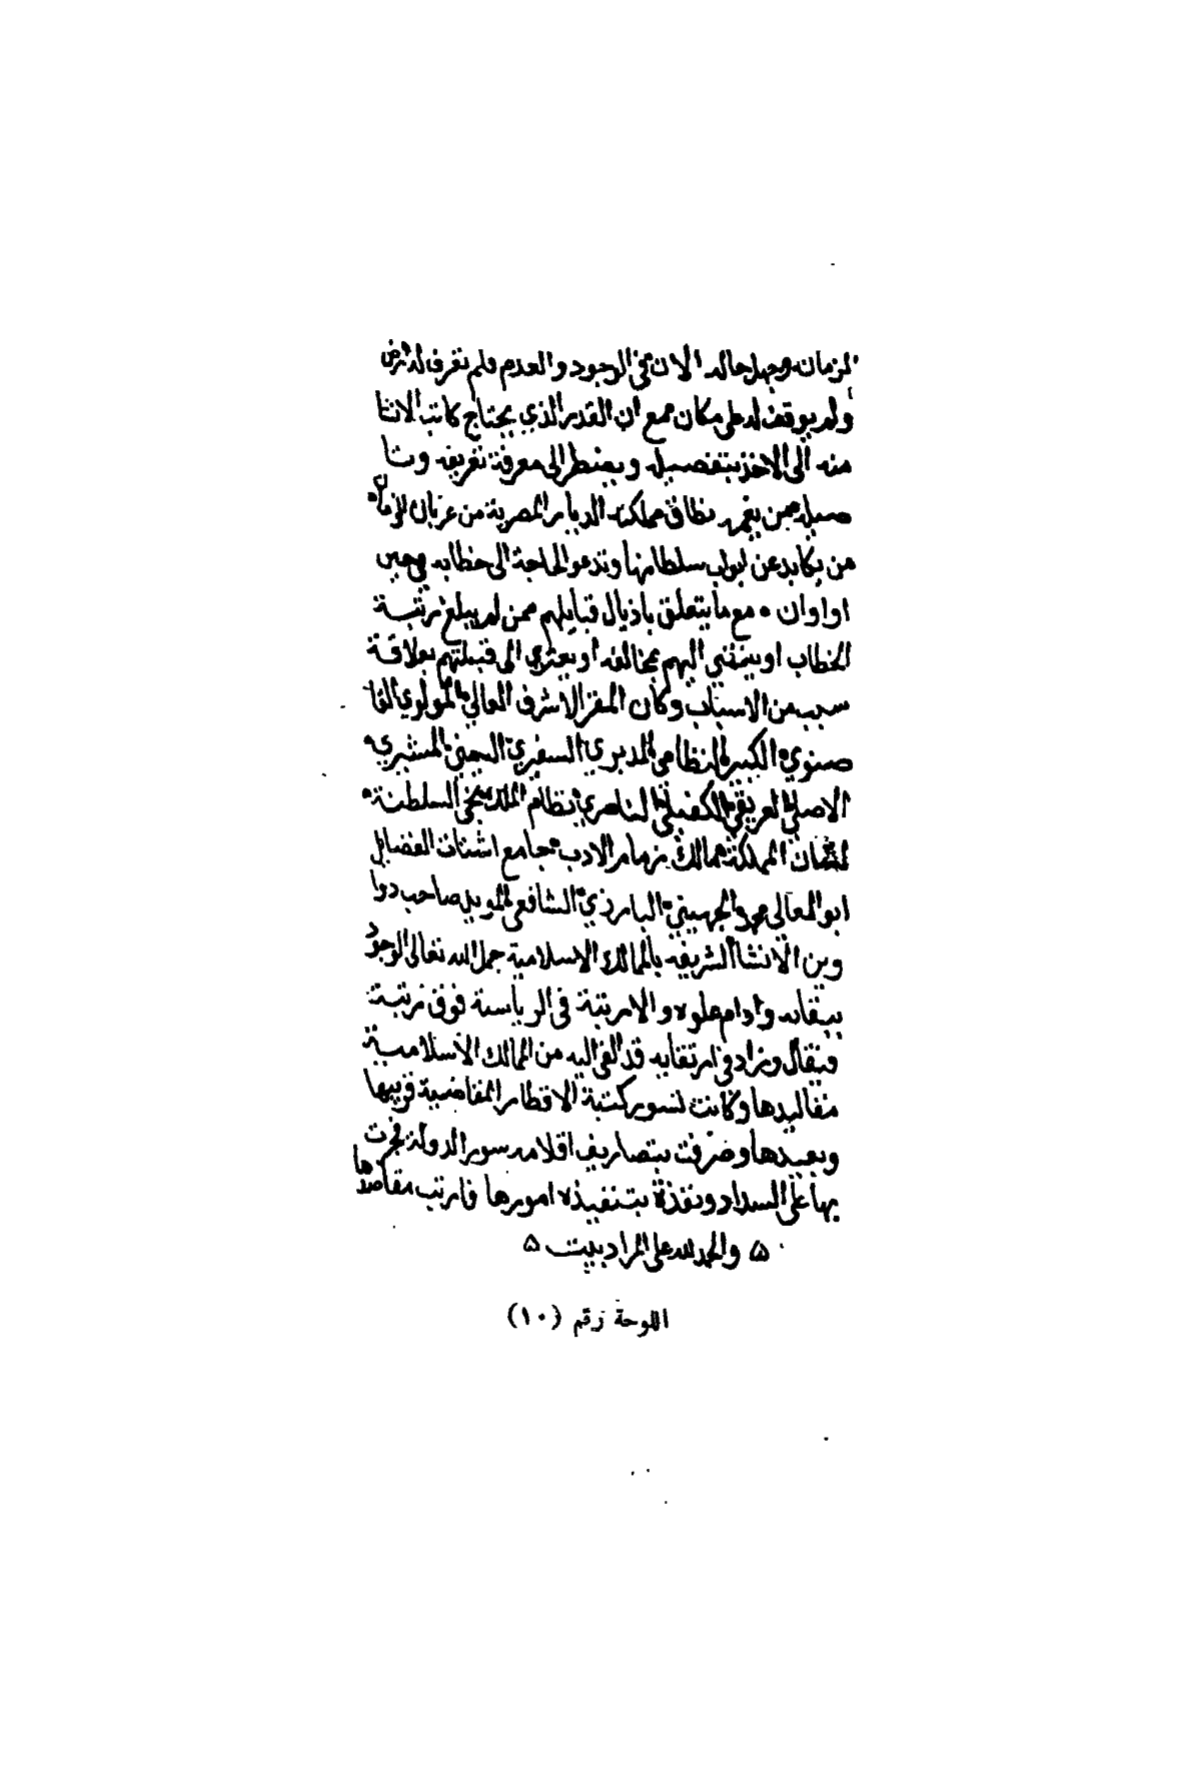 لزمانه وجهل حاله الان في الوجود والعدم فلم تعرف له ارض
ولم يوقف له على مكان مع ان القدر الذي يحتاج كاتب الانشا
منه الى الاخذ بتفصيله ويضطر الى معرفة تعريفه وتا
صيله ممن يضمه نطاق مملكة الديار المصرية من عربان الزمان
من يكابد عن ابواب سلطانها وتدعو الحاجة الى خطابه في حين
او اوان ٥ مع ما يتعلق باذيال قبايلهم ممن لم يبلغ رتبة
الخطاب او ينتمي اليهم بمخالفه او يعتزي الى قبيلتهم بعلاقة
سبب من الاسباب وكان المقر الاشرف العالي المولوي القا
ضوي الكبيري النظامي المدبري السفيري اليميني المشيري
الاصيلي العريقي الكفيلي الناصري نظام الملك السلطنة
لسان المملكة مالك زمام الادب جامع اشتات الفضايل
ابو المعالي محمد الجهيني البارزي الشافعي المويدي صاحب دوا
وين الانشا الشريفه بالممالك الاسلامية جمل الله تعالى الوجود
ببقايه وادام علوه والا مرتبة في الرياسة فوق مرتبة
فيقال وزاد في ارتقايه قد القى اليه من الممالك الاسلامية
مقاليدها وكانت لسويركتبة الاقطار المقاضية قريبها
وبعيدها وصرفت بتصاريف اقلامه سور الدولة فجرت
بها على السداد ونفذة بتنفيذه امورها فارتب مقاصدها
٥ والحمد لله على المراد بيت ٥
اللوحة رقم (١٠)